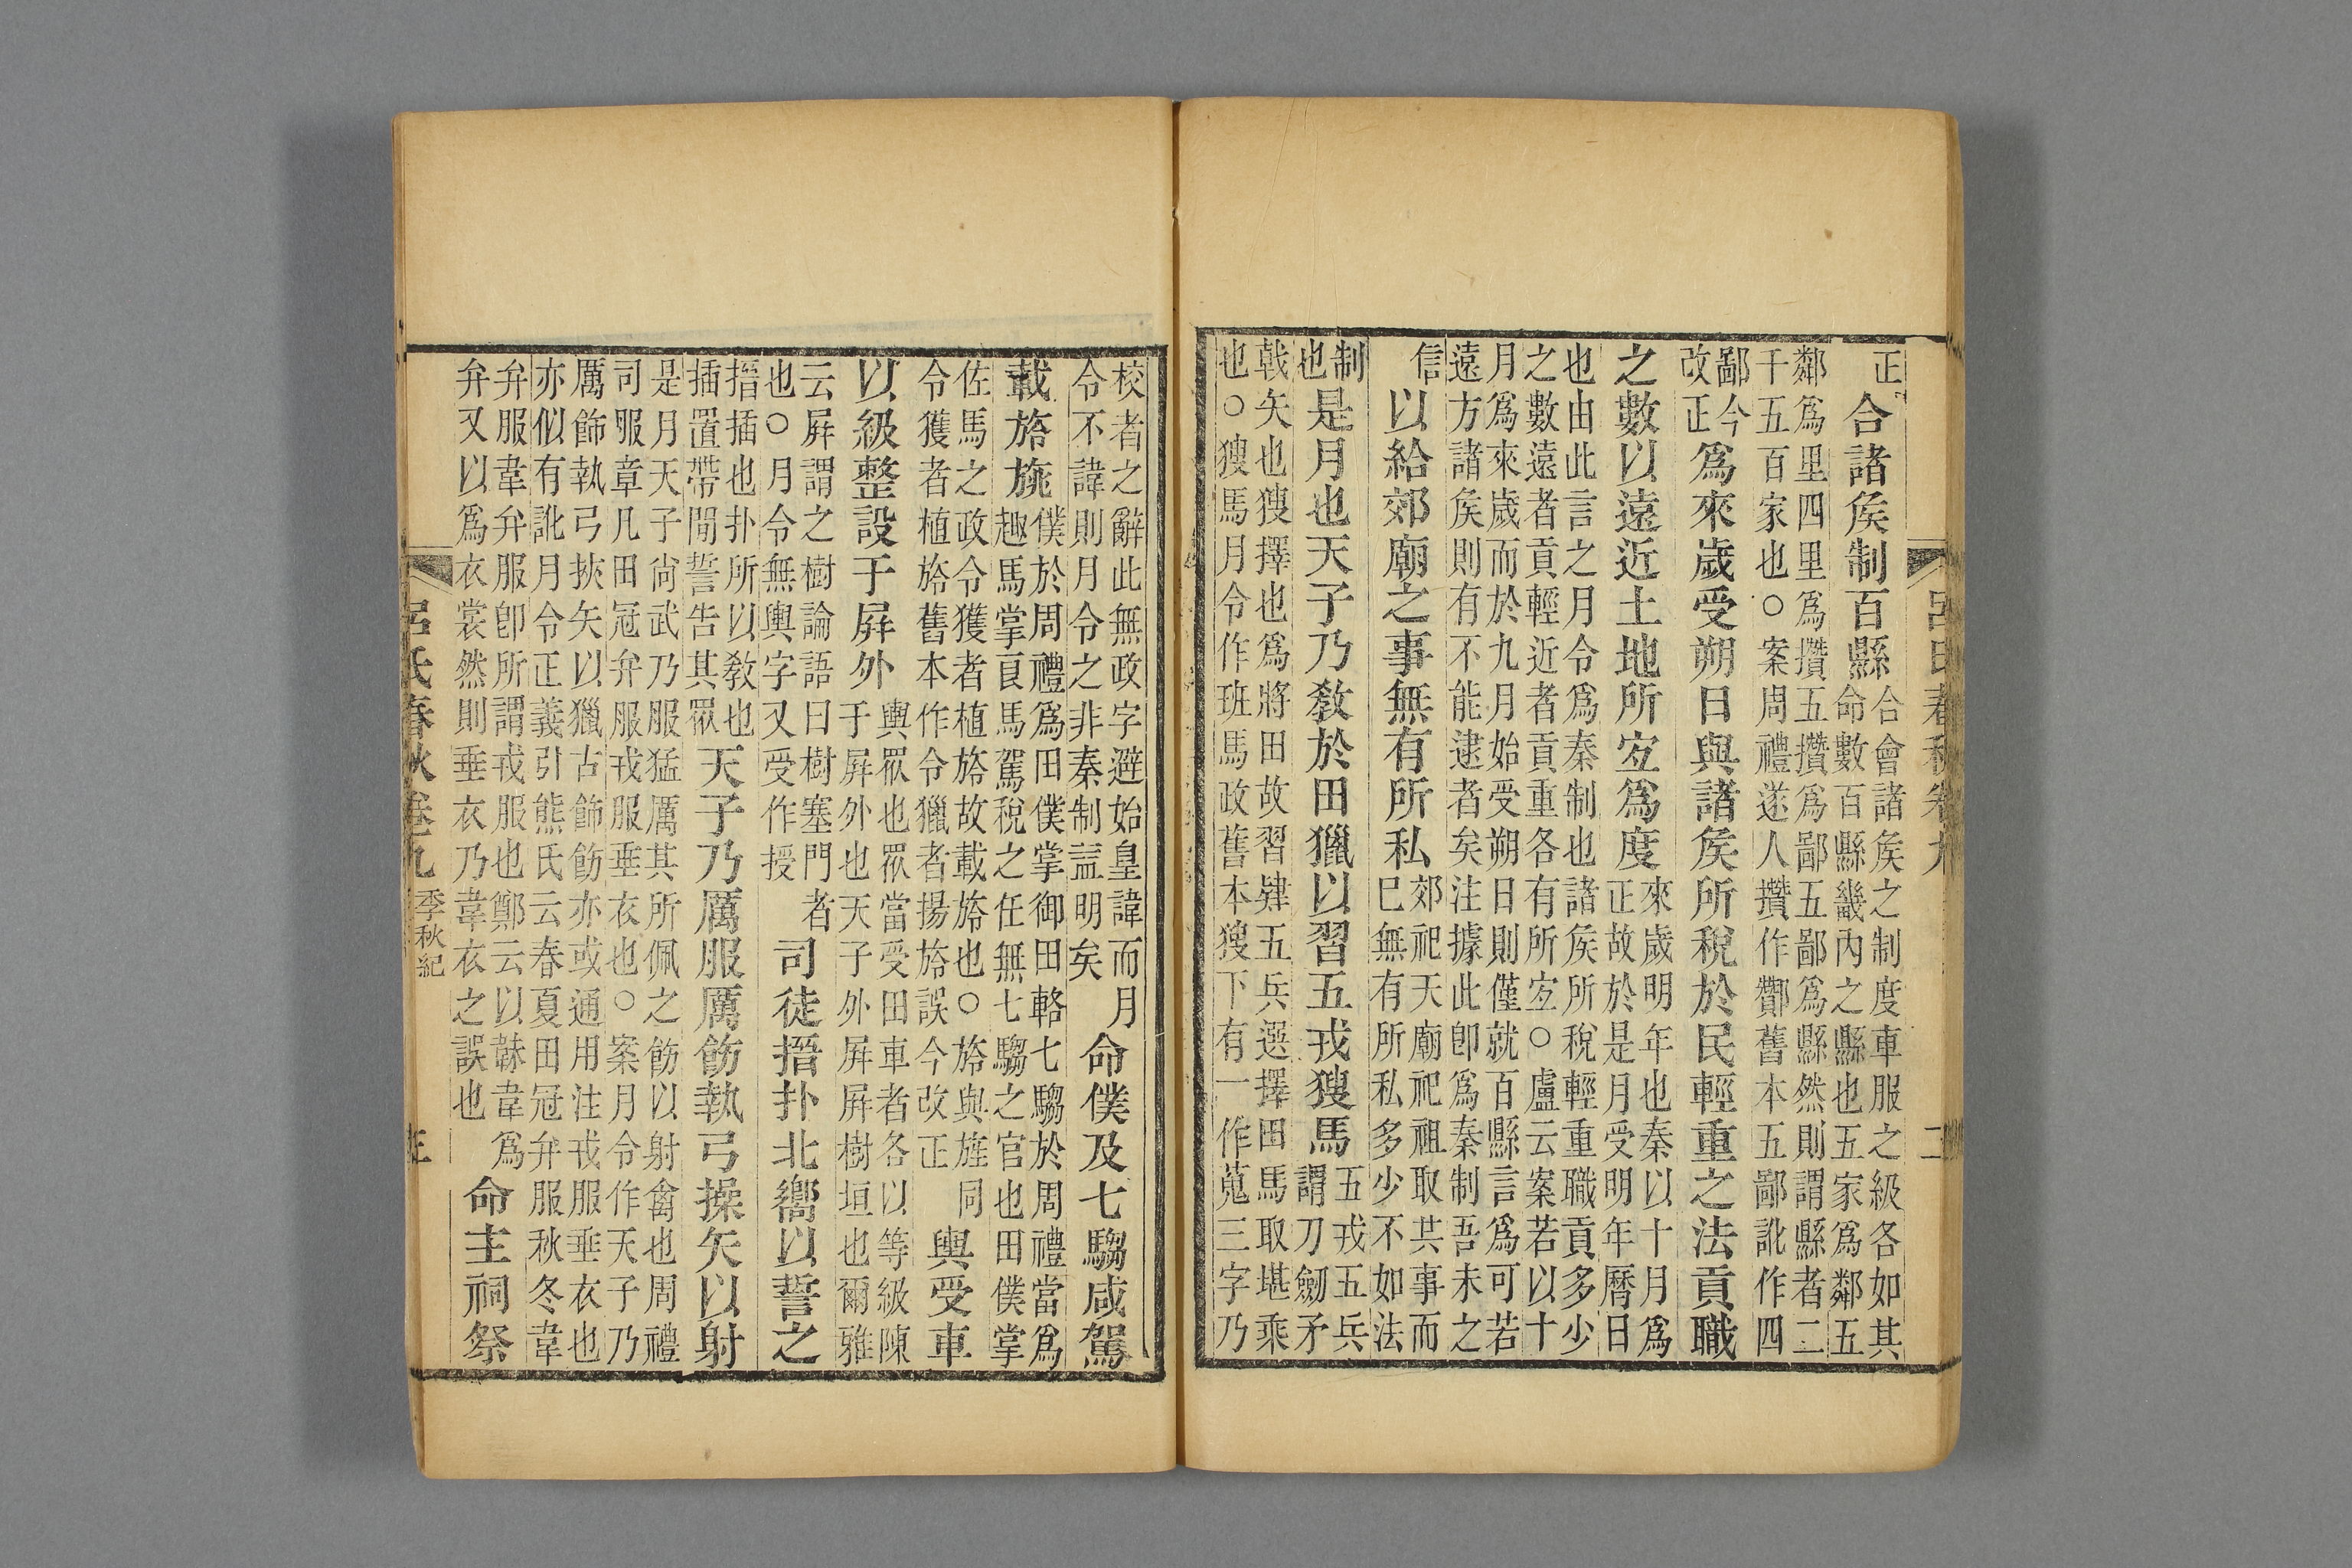 呂氏春秋卷九 二
正
合諸矦制百縣
合會諸矦之制度車服之級各如其
命數百縣畿內之縣也五家爲鄰五
鄰爲里四里爲攢五攢爲鄙五鄙爲縣然則謂縣者二
千五百家也○案周禮遂人攢作酇舊本五鄙訛作四
鄙今
改正
爲來歲受朔日與諸矦所稅於民輕重之法貢職
之數以遠近土地所宐爲度
來歲明年也秦以十月爲
正故於是月受明年曆日
也由此言之月令爲秦制也諸矦所稅輕重職貢多少
之數遠者貢輕近者貢重各有所宐○盧云案若以十
月爲來歲而於九月始受朔日則僅就百縣言爲可若
遠方諸矦則有不能逮者矣注據此卽爲秦制吾未之
信
以給郊廟之事無有所私
郊祀天廟祀祖取共事而
已無有所私多少不如法
制
也
是月也天子乃敎於田獵以習五戎獀馬
五戎五兵
謂刀劒矛
戟矢也獀擇也爲將田故習肄五兵選擇田馬取堪乘
也○獀馬月令作班馬政舊本獀下有一作蒐三字乃
校者之辭此無政字避始皇諱而月
令不諱則月令之非秦制益明矣
命僕及七騶咸駕
載旍旐
僕於周禮爲田僕掌御田輅七騶於周禮當爲
趣馬掌良馬駕稅之任無七騶之官也田僕掌
佐馬之政令獲者植旍故載旍也○旍與旌同
令獲者植旍舊本作令獵者揚旍誤今改正
輿受車
以級整設于屏外
輿眾也眾當受田車者各以等級陳
于屏外也天子外屏屏樹垣也爾雅
云屏謂之樹論語曰樹塞門者
也○月令無輿字又受作授
司徒搢扑北嚮以誓之
搢插也扑所以敎也
插置帶閒誓告其眾
天子乃厲服厲飭執弓操矢以射
是月天子尙武乃服猛厲其所佩之飭以射禽也周禮
司服章凡田冠弁服戎服垂衣也○案月令作天子乃
厲飾執弓挾矢以獵古飾飭亦或通用注戎服垂衣也
亦似有訛月令正義引熊氏云春夏田冠弁服秋冬韋
弁服韋弁服卽所謂戎服也鄭云以韎韋爲
弁又以爲衣裳然則垂衣乃韋衣之誤也
命主祠祭
呂氏春秋卷九 季秋紀 三